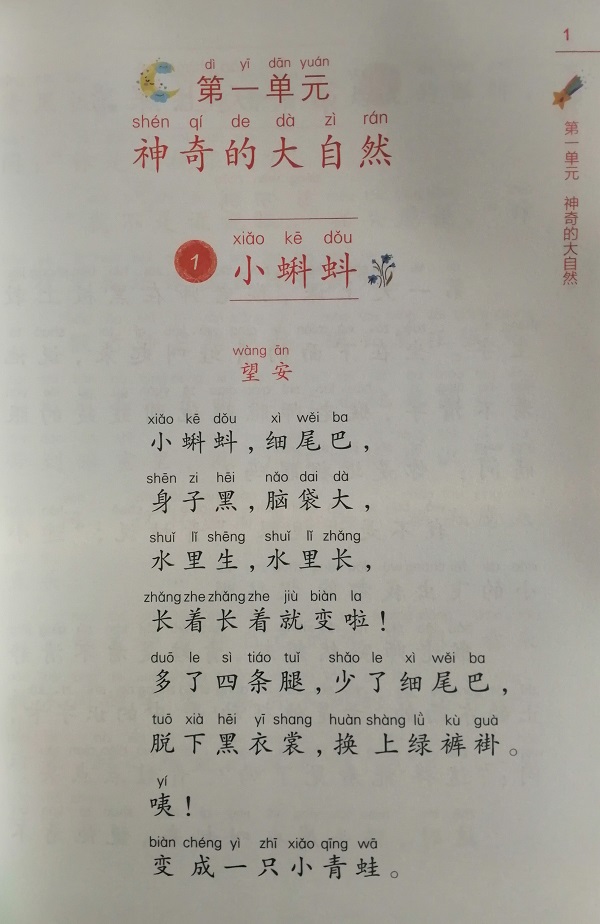 1
dì yī dān yuán
第一单元
shén qí de dà zì rán
神奇的大自然
xiǎo kē dǒu
1 小蝌蚪
wàng ān
望安
xiǎo kē dǒu xì wěi ba
小蝌蚪，细尾巴，
shēn zi hēi nǎo dai dà
身子黑，脑袋大，
shuǐ lǐ shēng shuǐ lǐ zhǎng
水里生，水里长，
zhǎng zhe zhǎng zhe jiù biàn la
长着长着就变啦！
duō le sì tiáo tuǐ shǎo le xì wěi ba
多了四条腿，少了细尾巴，
tuō xià hēi yī shang huàn shàng lǜ kù guà
脱下黑衣裳，换上绿裤褂。
yí
咦！
biàn chéng yì zhī xiǎo qīng wā
变成一只小青蛙。
第一单元 神奇的大自然